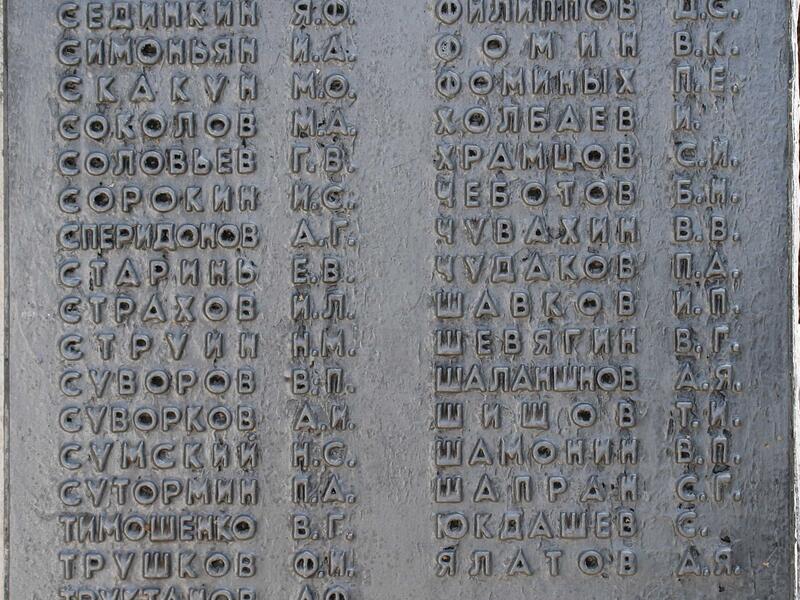 СЕДИНКИН Я.Ф.
СИМОНЬЯН И.А.
СКАКУН М.О.
СОКОЛОВ М.А.
СОЛОВЬЕВ Г.В.
СОРОКИН И.С.
СПЕРИДОНОВ А.Г.
СТАРИНЬ Е.В.
СТРАХОВ И.Л.
СТРУИН Н.М.
СУВОРОВ В.П.
СУВОРКОВ А.И.
СУМСКИЙ Н.С.
СУТОРМИН П.А.
ТИМОШЕНКО В.Г.
ТРУШКОВ Ф.И.
ФИЛИППОВ Д.С.
ФОМИН В.К.
ФОМИНЫХ П.Е.
ХОЛБАЕВ И.
ХРАМЦОВ С.И.
ЧЕБОТОВ Б.Н.
ЧУВАХИН В.В.
ЧУДАКОВ П.А.
ШАВКОВ И.П.
ШЕВЯГИН В.Г.
ШАЛАНШНОВ А.Я.
ШИШОВ Т.И.
ШАМОНИН В.П.
ШАПРАН С.Г.
ЮКДАШЕВ С.
ЯЛАТОВ А.Я.